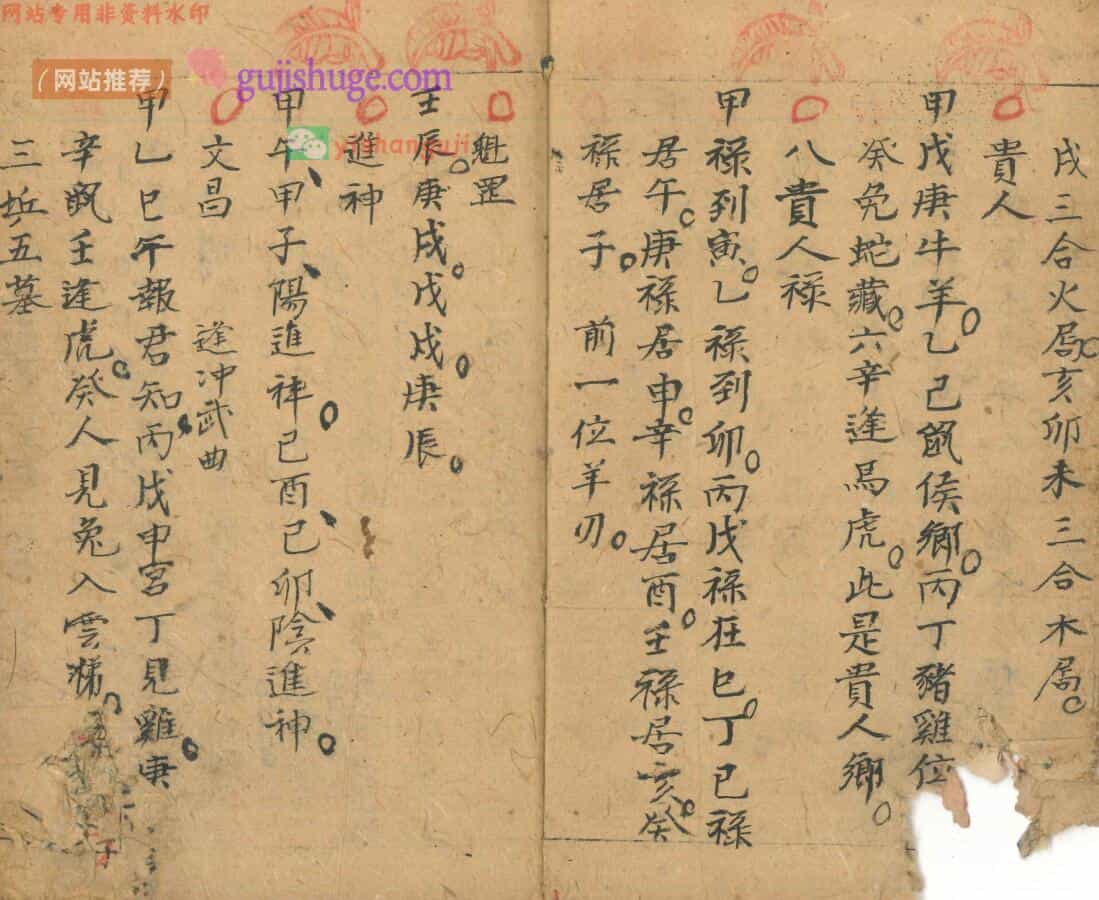 戌三合火局亥卯未三合木局
貴人
甲戊庚牛羊乙己鼠侯鄉丙丁豬雞位
癸兔蛇藏六辛逢馬虎此是貴人鄉
八貴人祿
甲祿到寅乙祿到卯丙戊祿在巳丁巳祿
居午庚祿居申辛祿居酉壬祿居亥癸
祿居子 前一位羊刃
魁罡
壬辰庚戌戊戌庚辰
進神
甲午甲子陽進神己酉己卯陰進神
文昌 逢冲武曲
甲乙巳午報君知丙戊申宮丁見雞庚
辛鼠壬逢虎癸人見兔入雲梯
三坵五墓
网站专用非资料水印
(网站推荐)
gujishuge.com